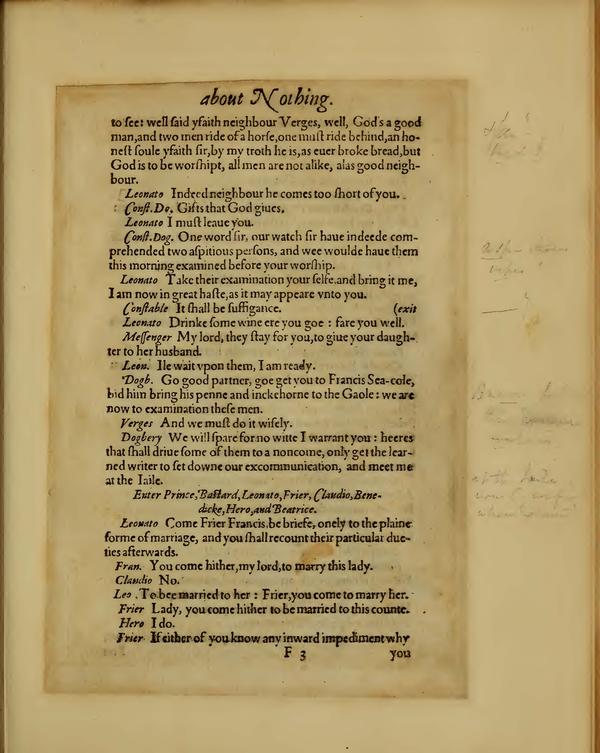 about Nothing.
to ſee: well ſaid yfaith neighbour Verges, well, God's a good
man, and two men ride of a horſe, one muſt ride behind, an ho-
neſt ſoule yfaith ſir, by my troth he is, as euer broke bread, but
God is to be worſhipt, all men are not alike, alas good neigh-
bour.
Leonato Indeed neighbour he comes too ſhort of you.
Conſt. Do. Gifts that God giues.
Leonato I muſt leaue you.
Conſt. Dog. One word ſir, our watch ſir haue indeede com-
prehended two aſpitious perſons, and wee woulde haue them
this morning examined before your worſhip.
Leonato Take their examination your ſelfe, and bring it me,
I am now in great haſte, as it may appeare vnto you.
Conſtable It ſhall be ſuffigance. (exit
Leonato Drinke ſome wine ere you goe : fare you well.
Meſſenger My lord, they ſtay for you, to giue your daugh-
ter to her husband.
Leon. Ile wait vpon them, I am ready.
Dogb. Go good partner, goe get you to Francis Sea-cole,
bid him bring his penne and inckehorne to the Gaole : we are
now to examination theſe men.
Verges And we muſt do it wiſely.
Dogbery We will ſpare for no witte I warrant you : heeres
that ſhall driue ſome of them to a noncome, only get the lear-
ned writer to ſet downe our excommunication, and meet me
at the Iaile.
Enter Prince, Baſtard, Leonato, Frier, Claudio, Bene-
dicke, Hero, and Beatrice.
Leonato Come Frier Francis, be briefe, onely to the plaine
forme of marriage, and you ſhall recount their particular due-
ties afterwards.
Fran. You come hither, my lord, to marry this lady.
Claudio No.
Leo . To bee married to her : Frier, you come to marry her.
Frier Lady, you come hither to be married to this counte.
Hero I do.
Frier If either of you know any inward impediment why
F 3 you